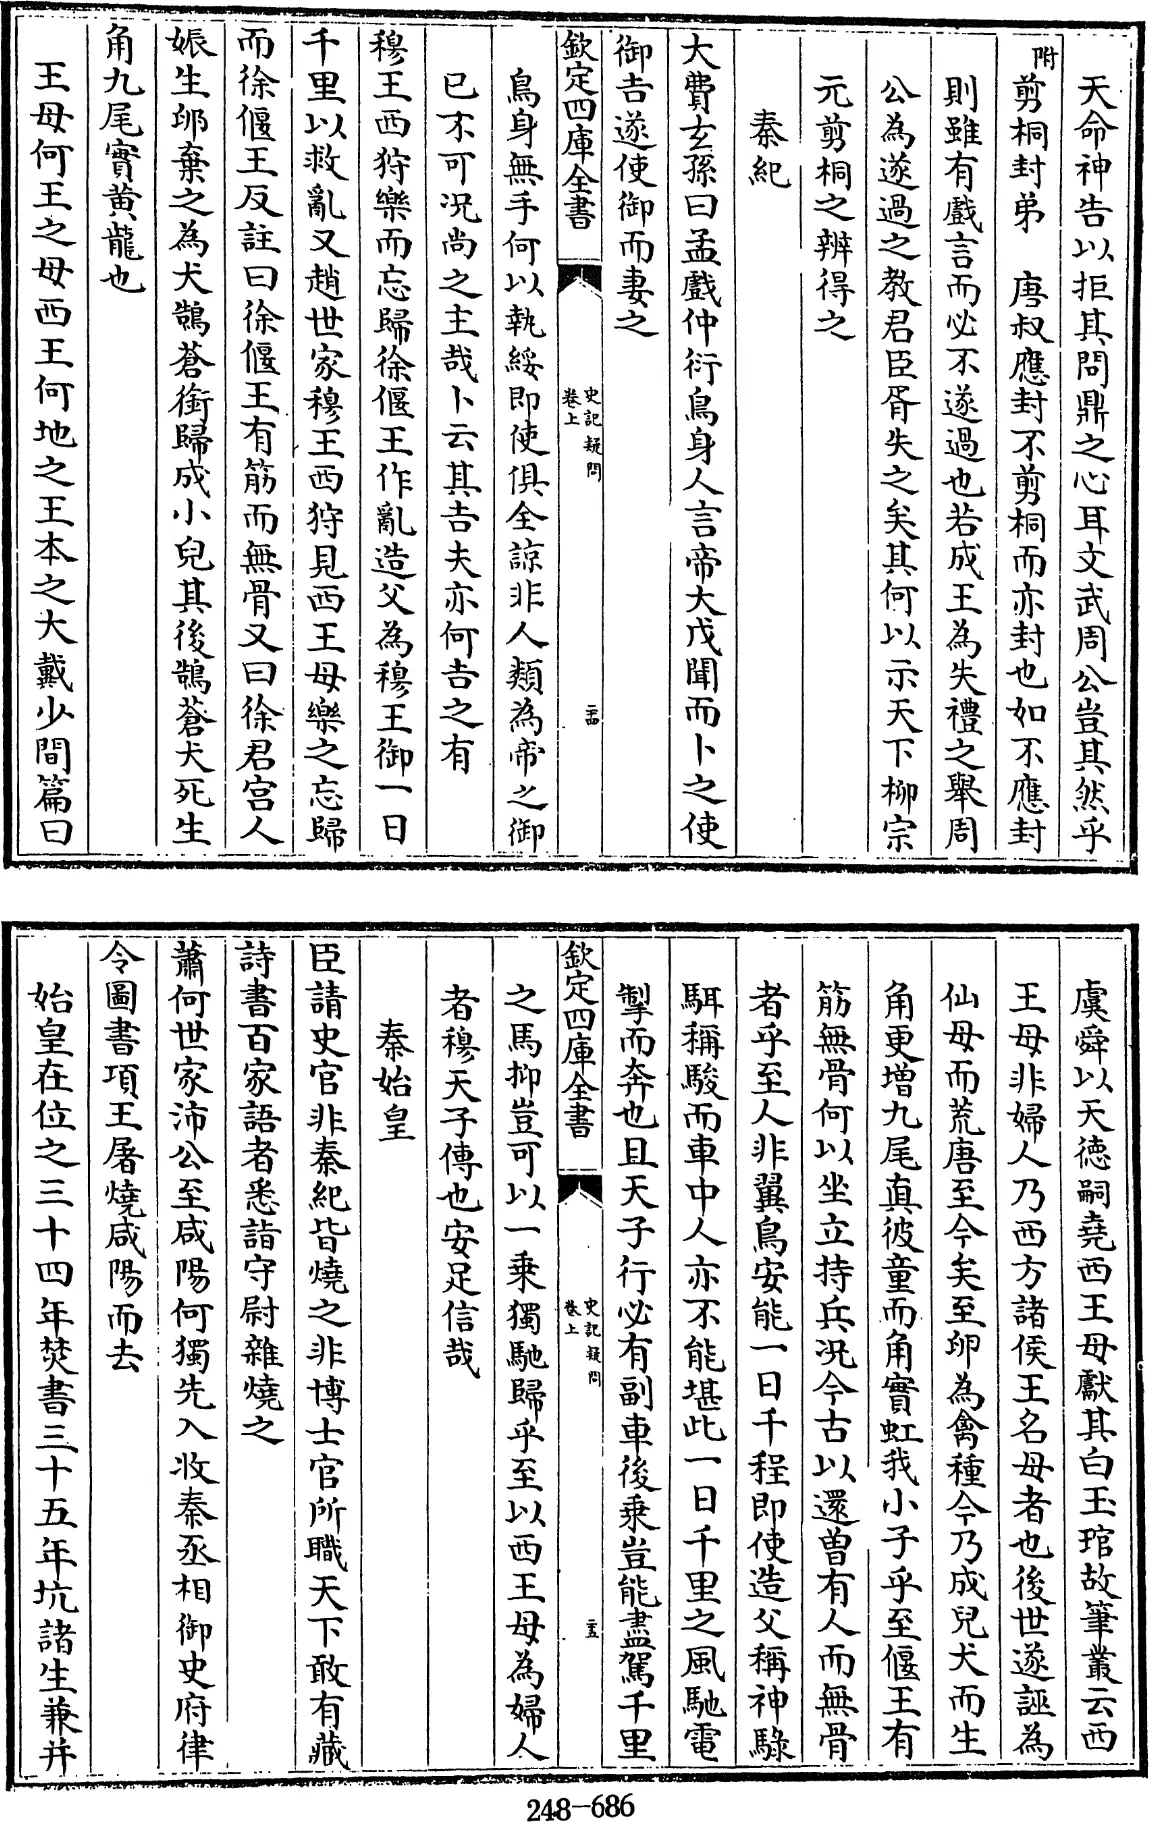 天命神告以拒其問鼎之心耳文武周公豈其然乎
附
剪桐封弟　唐叔應封不剪桐而亦封也如不應封
則雖有戲言而必不遂過也若成王為失禮之舉周
公為遂過之教君臣胥失之矣其何以示天下柳宗
元剪桐之辨得之
秦紀
大費玄孫曰孟戲仲衍鳥身人言帝大戊聞而卜之使
御吉遂使御而妻之
欽定四庫全書
史記疑問
卷上
二十四
鳥身無手何以執綏即使俱全諒非人類為帝之御
已不可况尚之主哉卜云其吉夫亦何吉之有
穆王西狩樂而忘歸徐偃王作亂造父為穆王御一日
千里以救亂又趙世家穆王西狩見西王母樂之忘歸
而徐偃王反註曰徐偃王有筋而無骨又曰徐君宮人
娠生卵棄之為犬鵠蒼銜歸成小兒其後鵠蒼犬死生
角九尾實黃龍也
王母何王之母西王何地之王本之大戴少間篇曰
虞舜以天德嗣堯西王母獻其白玉琯故筆叢云西
王母非婦人乃西方諸侯王名母者也後世遂誣為
仙母而荒唐至今矣至卵為禽種今乃成兒犬而生
角更增九尾真彼童而角實虹我小子乎至偃王有
筋無骨何以坐立持兵况今古以還曾有人而無骨
者乎至人非翼鳥安能一日千程即使造父稱神騄
駬稱駿而車中人亦不能堪此一日千里之風馳電
掣而奔也且天子行必有副車後乘豈能盡駕千里
欽定四庫全書
史記疑問
卷上
二十五
之馬抑豈可以一乘獨馳歸乎至以西王母為婦人
者穆天子傳也安足信哉
秦始皇
臣請史官非秦紀皆燒之非博士官所職天下敢有藏
詩書百家語者悉詣守尉雜燒之
蕭何世家沛公至咸陽何獨先入收秦丞相御史府律
令圖書項王屠燒咸陽而去
始皇在位之三十四年焚書三十五年坑諸生兼并
248-686